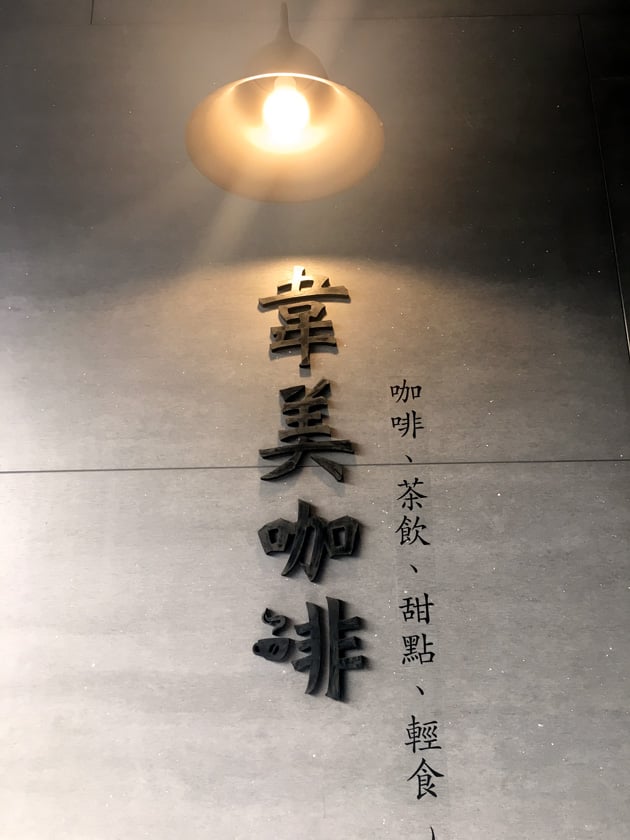 韋美咖啡
咖啡、茶飲、甜點、輕食、